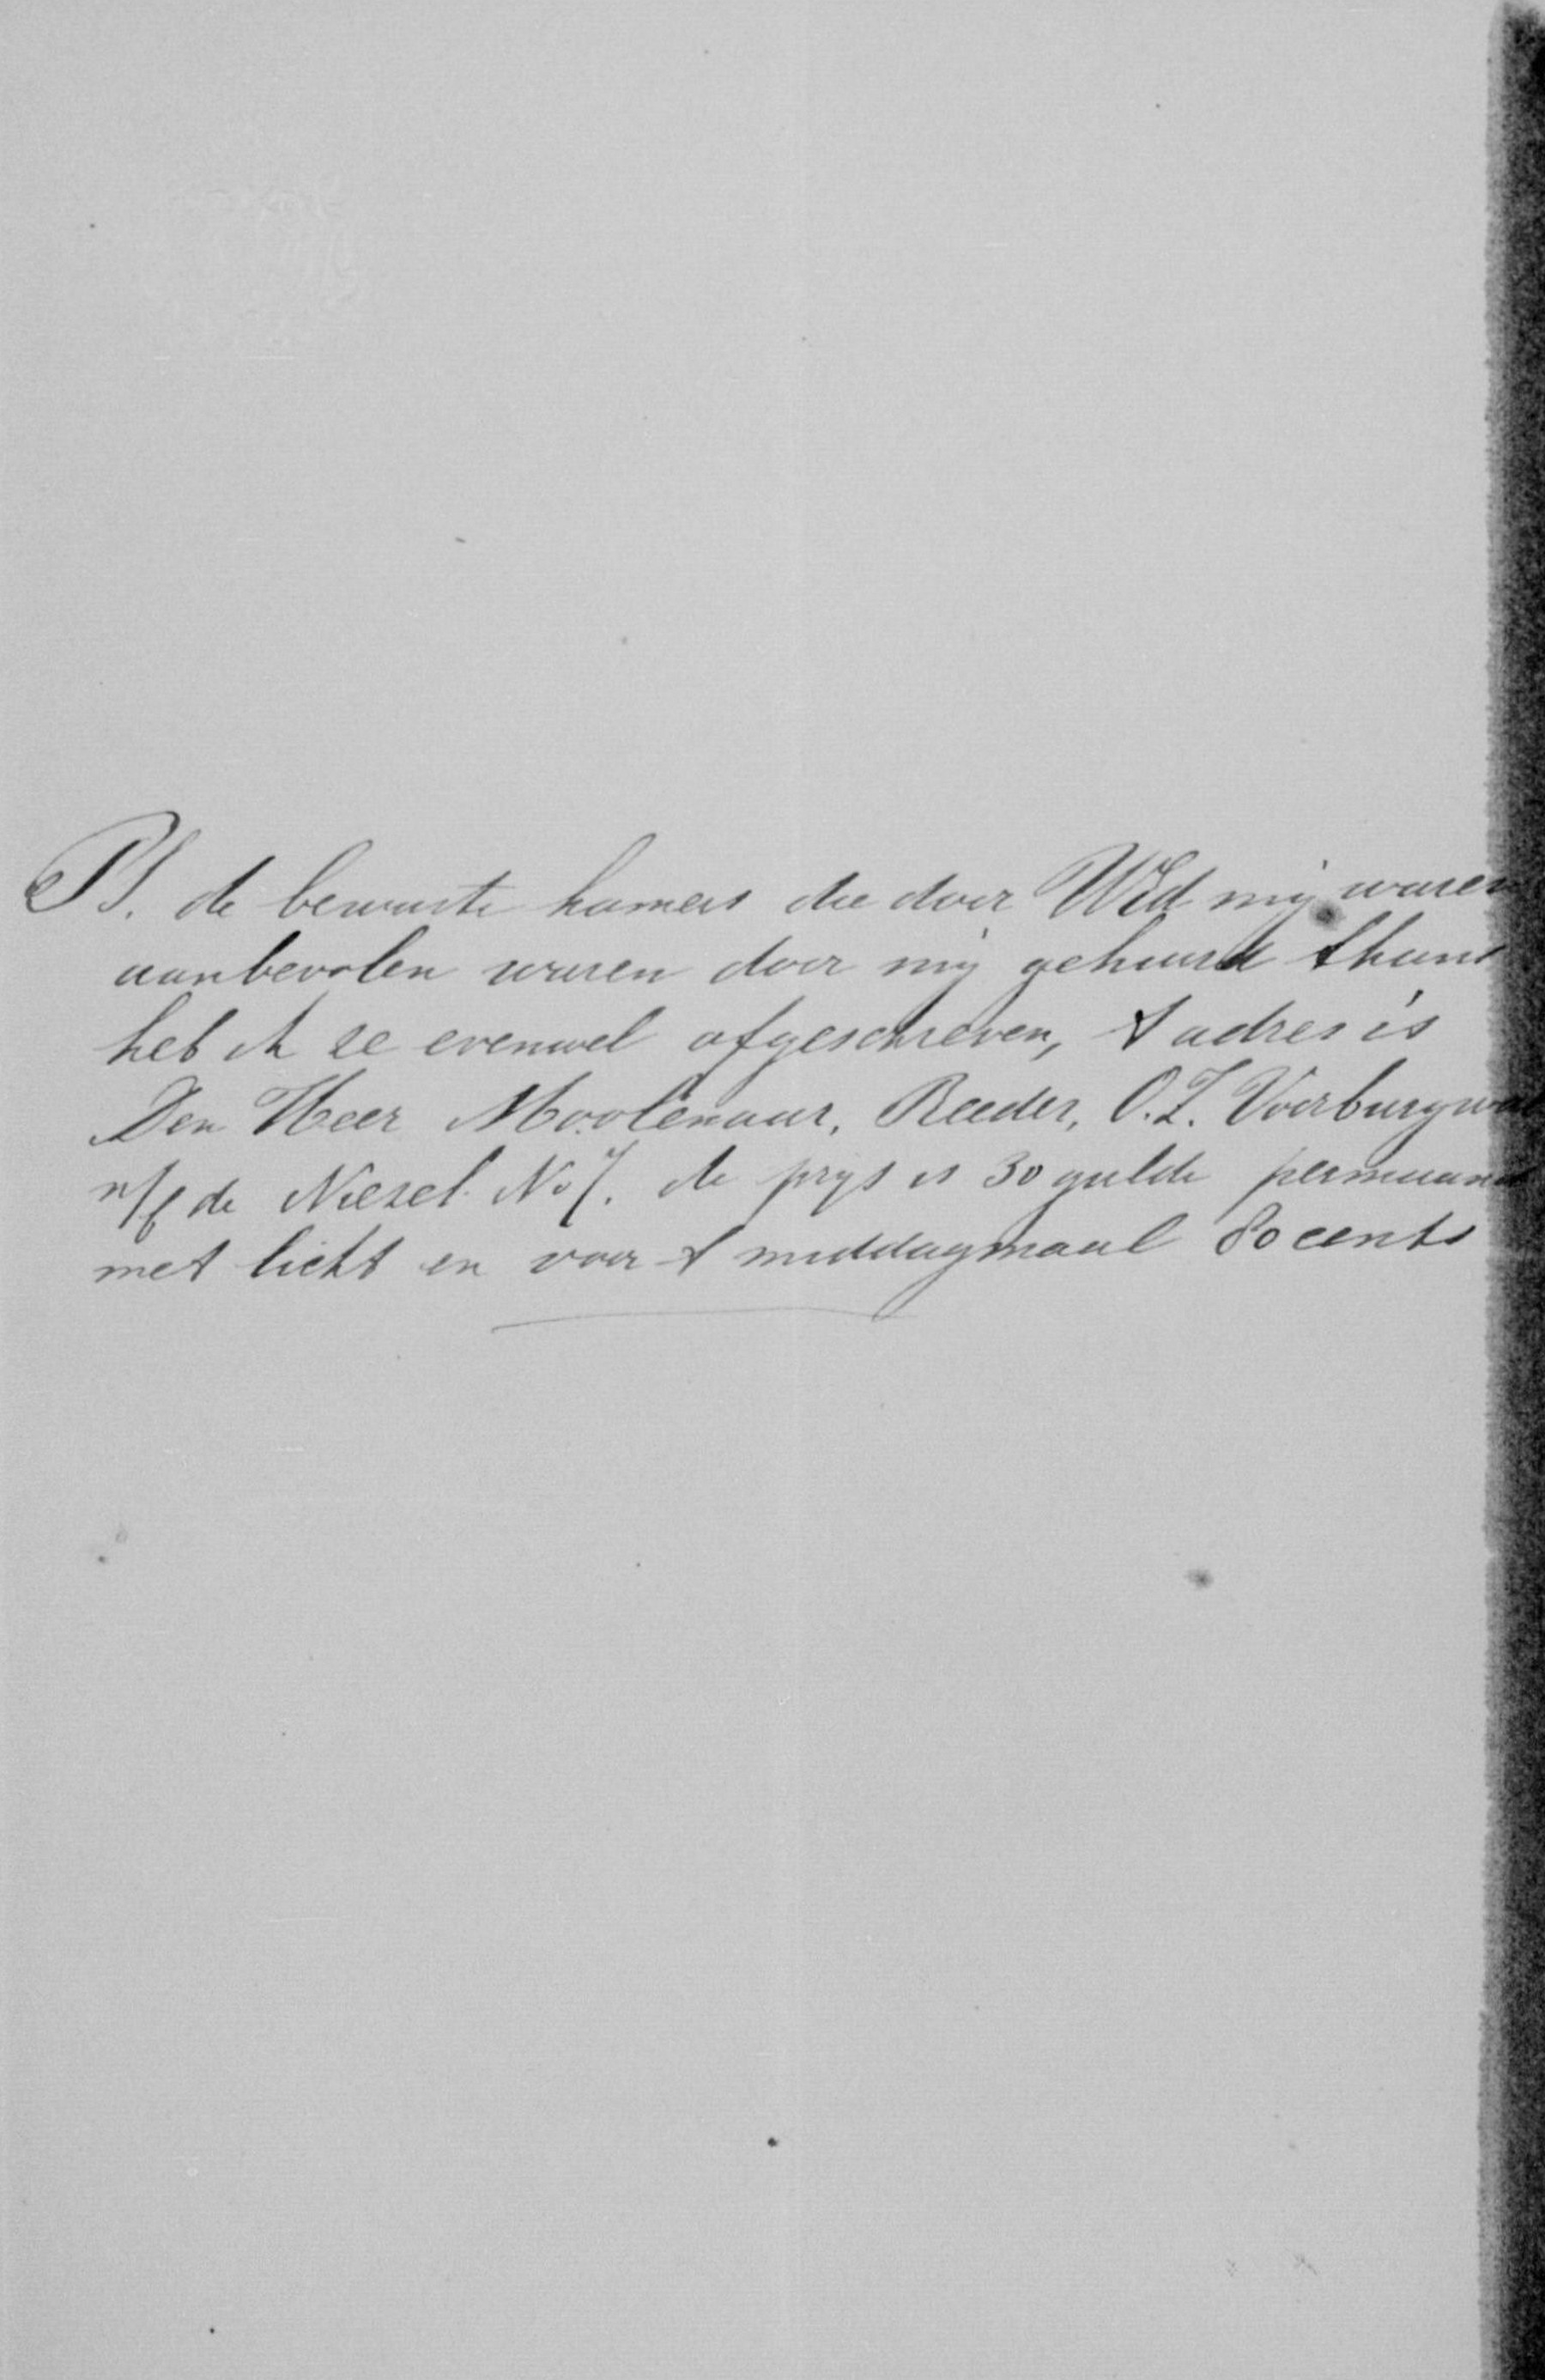 PS. de bewuste kamers die door WEd mij waren
aanbevolen waren door mij gehuurd thans
heb ik ze evenwel afgeschreven, t adres is
Den Heer Moolenaar, Reeder, O.Z. Voorburgwal
n/b de Niezel No 7. de prijs is 30 gulde per maand
met licht en voor t middagmaal 80 cents